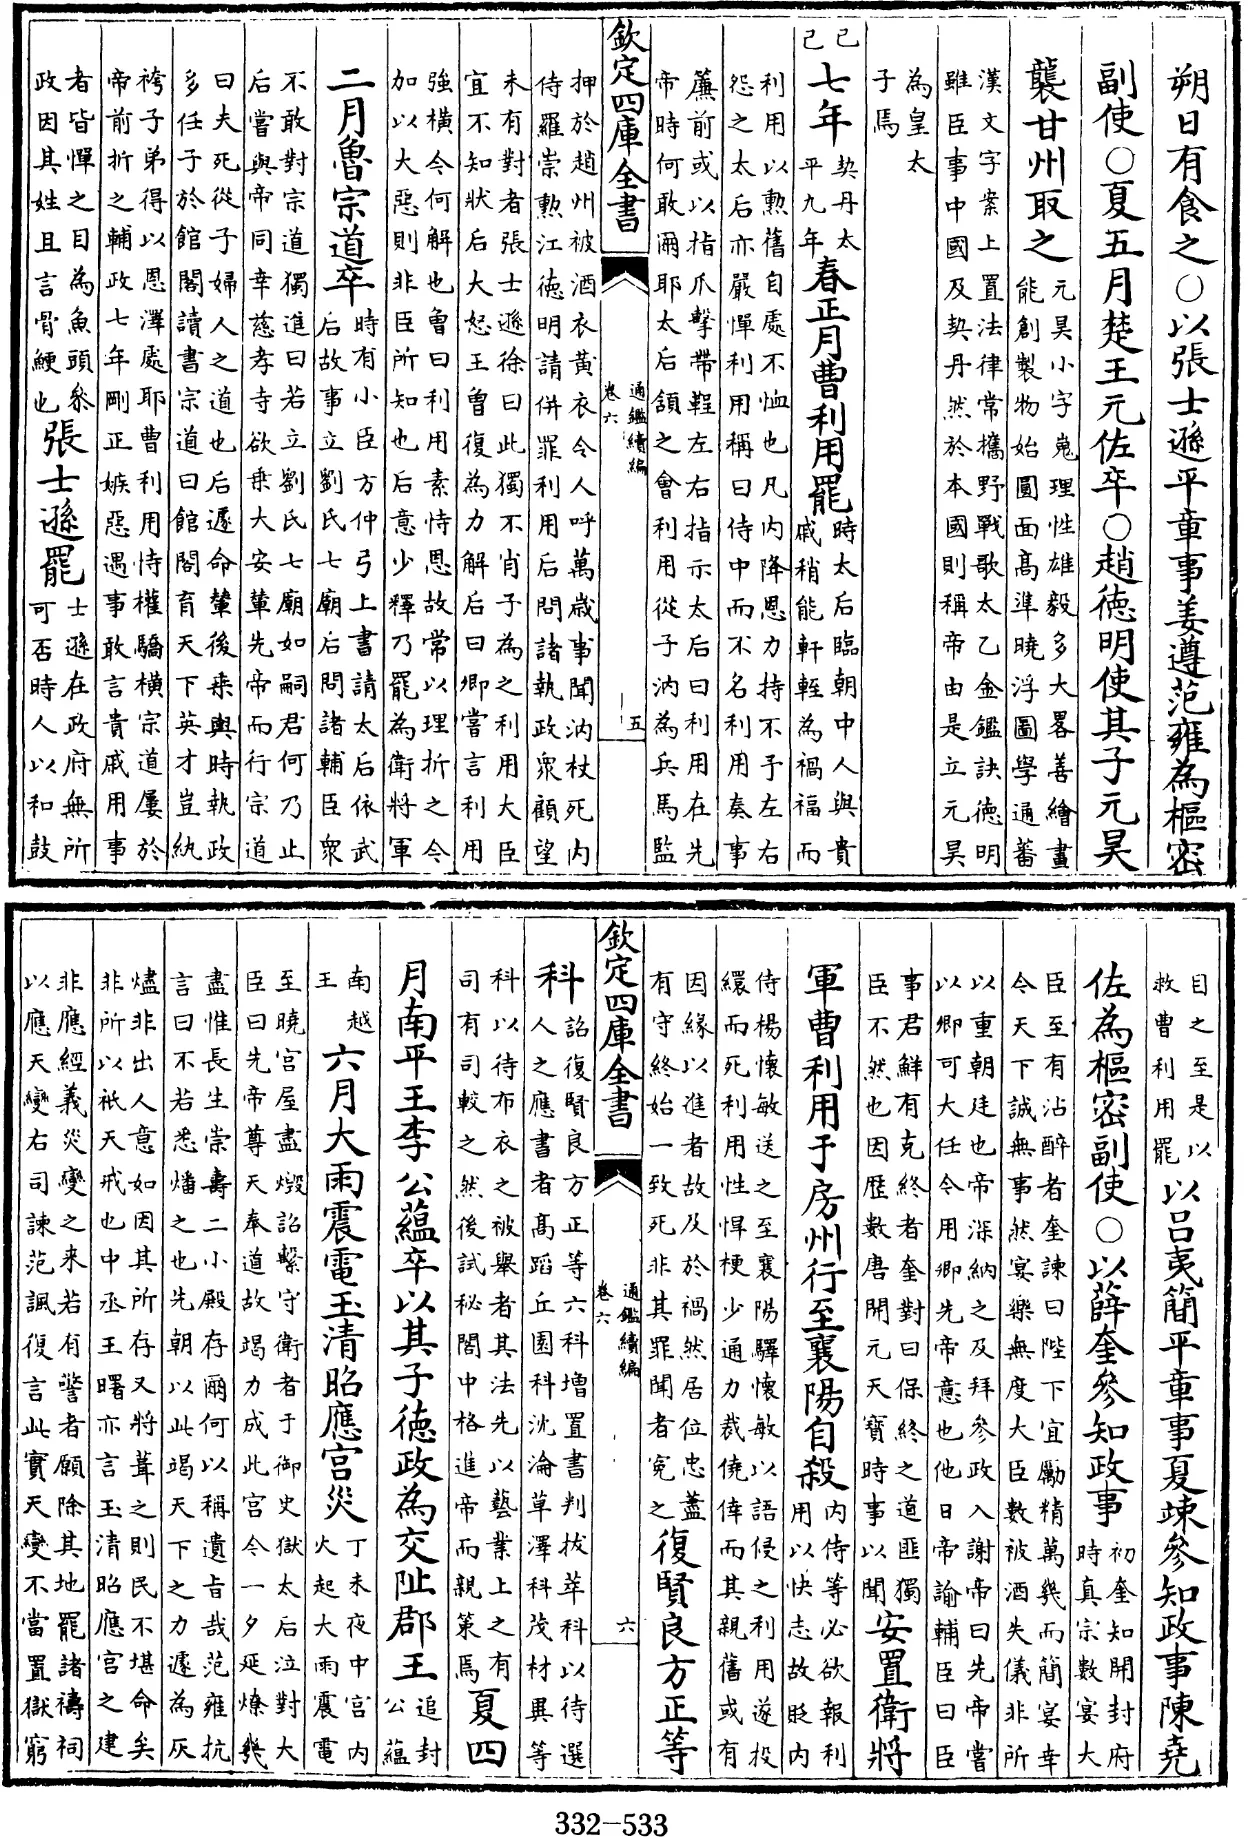 朔日有食之○以張士遜平章事姜遵范雍為樞密
副使○夏五月楚王元佐卒○趙德明使其子元昊
襲甘州取之元昊小字嵬理性雄毅多大畧善繪畫
能創製物始圓面髙準曉浮圖學通蕃
漢文字案上置法律常攜野戰歌太乙金鑑訣德明
雖臣事中國及契丹然於本國則稱帝由是立元昊
為皇太
子焉
己巳七年契丹太平九年春正月曹利用罷時太后臨朝中人與貴
戚稍能軒輊為禍福而
利用以勲舊自處不恤也凡内降恩力持不予左右
怨之太后亦嚴憚利用稱曰侍中而不名利用奏事
簾前或以指爪擊帶鞓左右指示太后曰利用在先
帝時何敢爾耶太后頷之會利用從子汭為兵馬監
欽定四庫全書 通鑑續編 卷六 五
押於趙州被酒衣黄衣令人呼萬歳事聞汭杖死内
侍羅崇勲江德明請併罪利用后問諸執政衆顧望
未有對者張士遜徐曰此獨不肖子為之利用大臣
宜不知狀后大怒王曽復為力解后曰卿嘗言利用
強橫今何解也曽曰利用素恃恩故常以理折之今
加以大惡則非臣所知也后意少釋乃罷為衛將軍
二月魯宗道卒時有小臣方仲弓上書請太后依武
后故事立劉氏七廟后問諸輔臣衆
不敢對宗道獨進曰若立劉氏七廟如嗣君何乃止
后嘗與帝同幸慈孝寺欲乗大安輦先帝而行宗道
曰夫死從子婦人之道也后遽命輦後乗輿時執政
多任子於館閣讀書宗道曰館閣育天下英才豈紈
袴子弟得以恩澤處耶曹利用恃權驕橫宗道屢於
帝前折之輔政七年剛正嫉惡遇事敢言貴戚用事
者皆憚之目為魚頭叅
政因其姓且言骨鯁也張士遜罷士遜在政府無所
可否時人以和鼓
目之至是以
救曹利用罷以吕夷簡平章事夏竦參知政事陳堯
佐為樞密副使○以薛奎參知政事初奎知開封府
時真宗數宴大
臣至有沾醉者奎諫曰陛下宜勵精萬幾而簡宴幸
今天下誠無事然宴樂無度大臣數被酒失儀非所
以重朝廷也帝深納之及拜參政入謝帝曰先帝嘗
以卿可大任今用卿先帝意也他日帝諭輔臣曰臣
事君鮮有克終者奎對曰保終之道匪獨
臣不然也因歴數唐開元天寳時事以聞安置衛將
軍曹利用于房州行至襄陽自殺内侍等必欲報利
用以快志故貶内
侍楊懷敏送之至襄陽驛懷敏以語侵之利用遂投
繯而死利用性悍梗少通力裁僥倖而其親舊或有
因緣以進者故及於禍然居位忠藎
有守終始一致死非其罪聞者寃之復賢良方正等
欽定四庫全書 通鑑續編 卷六 六
科詔復賢良方正等六科増置書判拔萃科以待選
人之應書者髙蹈丘園科沈淪草澤科茂材異等
科以待布衣之被舉者其法先以藝業上之有
司有司較之然後試秘閣中格進帝而親策焉夏四
月南平王李公蘊卒以其子德政為交阯郡王追封
公蘊
南越
王六月大雨震電玉清昭應宫災丁未夜中宫内
火起大雨震電
至曉宫屋盡燬詔繫守衛者于御史獄太后泣對大
臣曰先帝尊天奉道故竭力成此宫今一夕延燎幾
盡惟長生崇壽二小殿存爾何以稱遺㫖哉范雍抗
言曰不若悉燔之也先朝以此竭天下之力遽為灰
燼非出人意如因其所存又將葺之則民不堪命矣
非所以祇天戒也中丞王曙亦言玉清昭應宫之建
非應經義災變之来若有警者願除其地罷諸禱祠
以應天變右司諫范諷復言此實天變不當置獄窮
332－533